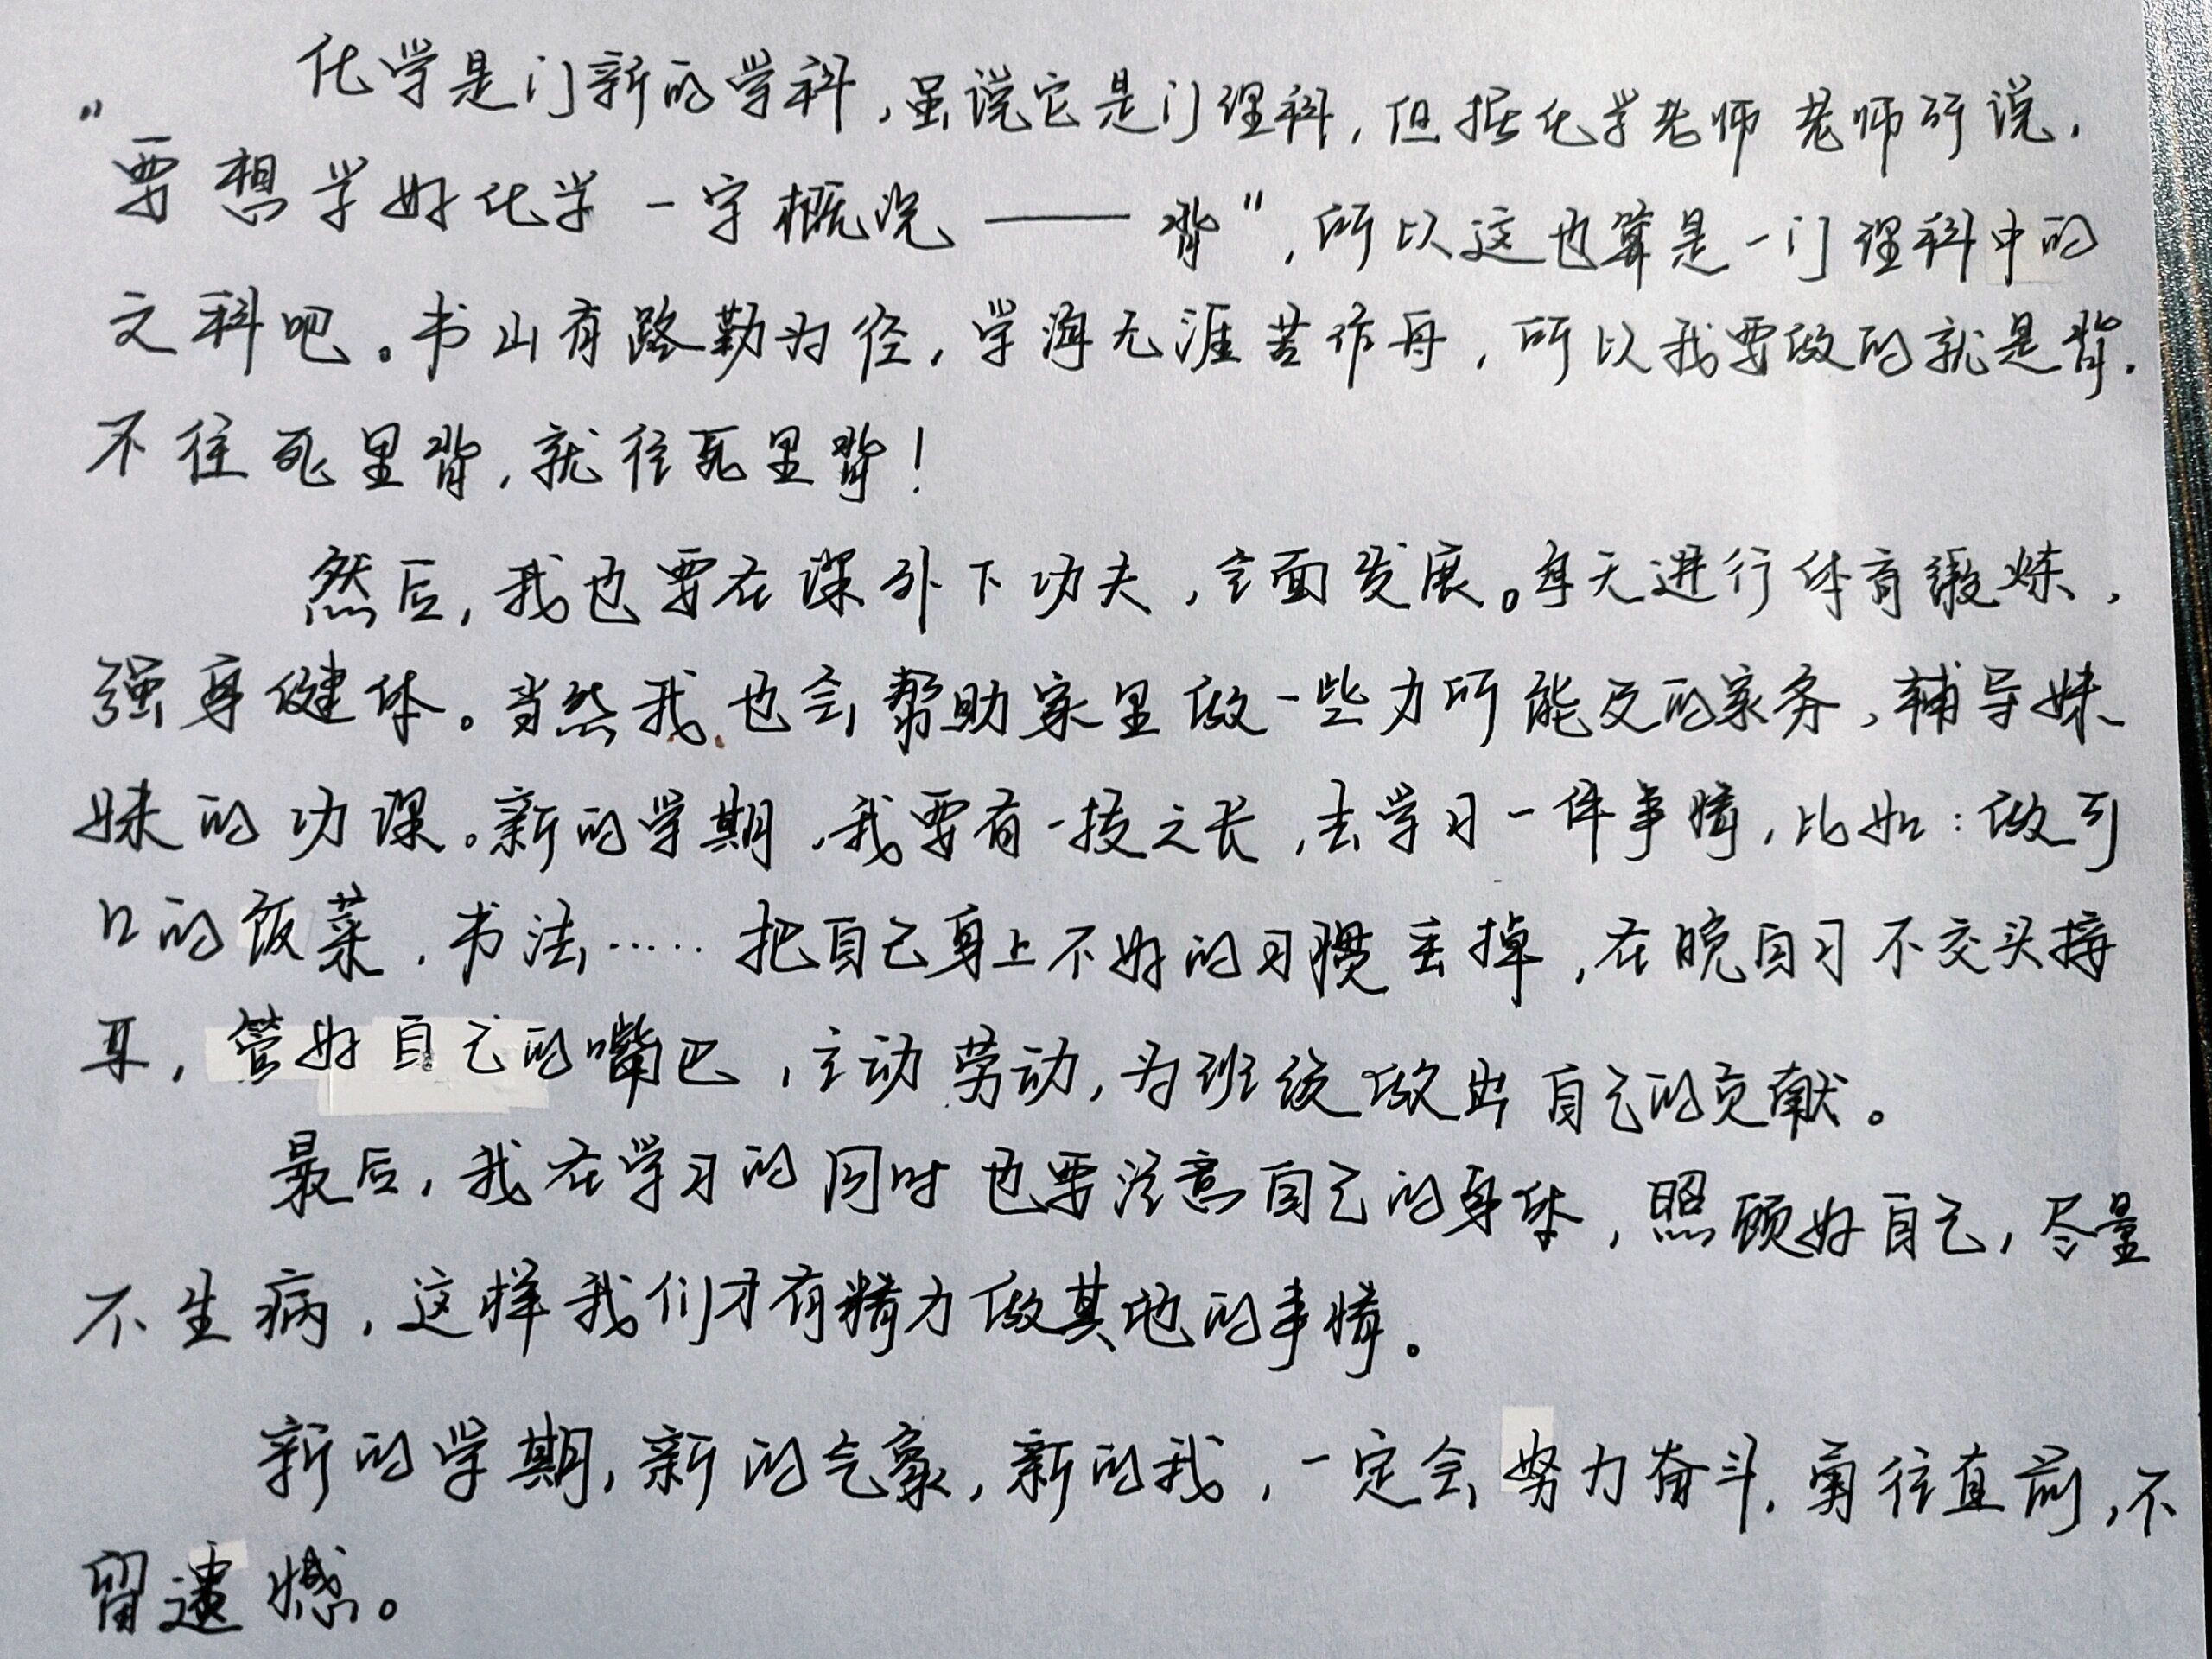 化学是门新的学科,虽说它是门理科,但据化学老师老师所说,
"要想学好化学一字概况——背",所以这也算是一门理科中的
文科吧。书山有路勤为径,学海无涯苦作舟,所以我要做的就是背,
不往死里背,就往死里背!
然后,我也要在课外下功夫,全面发展。每天进行体育锻炼,
强身健体。当然我也会帮助家里做一些力所能及的家务,辅导妹
妹的功课。新的学期,我要有一技之长,去学习一件事情,比如:做可
口的饭菜,书法……把自己身上不好的习惯丢掉,在晚自习不交头接
耳,管好自己的嘴巴,主动劳动,为班级做出自己的贡献。
最后,我在学习的同时也要注意自己的身体,照顾好自己,尽量
不生病,这样我们才有精力做其他的事情。
新的学期,新的气象,新的我,一定会努力奋斗,勇往直前,不
留遗憾。